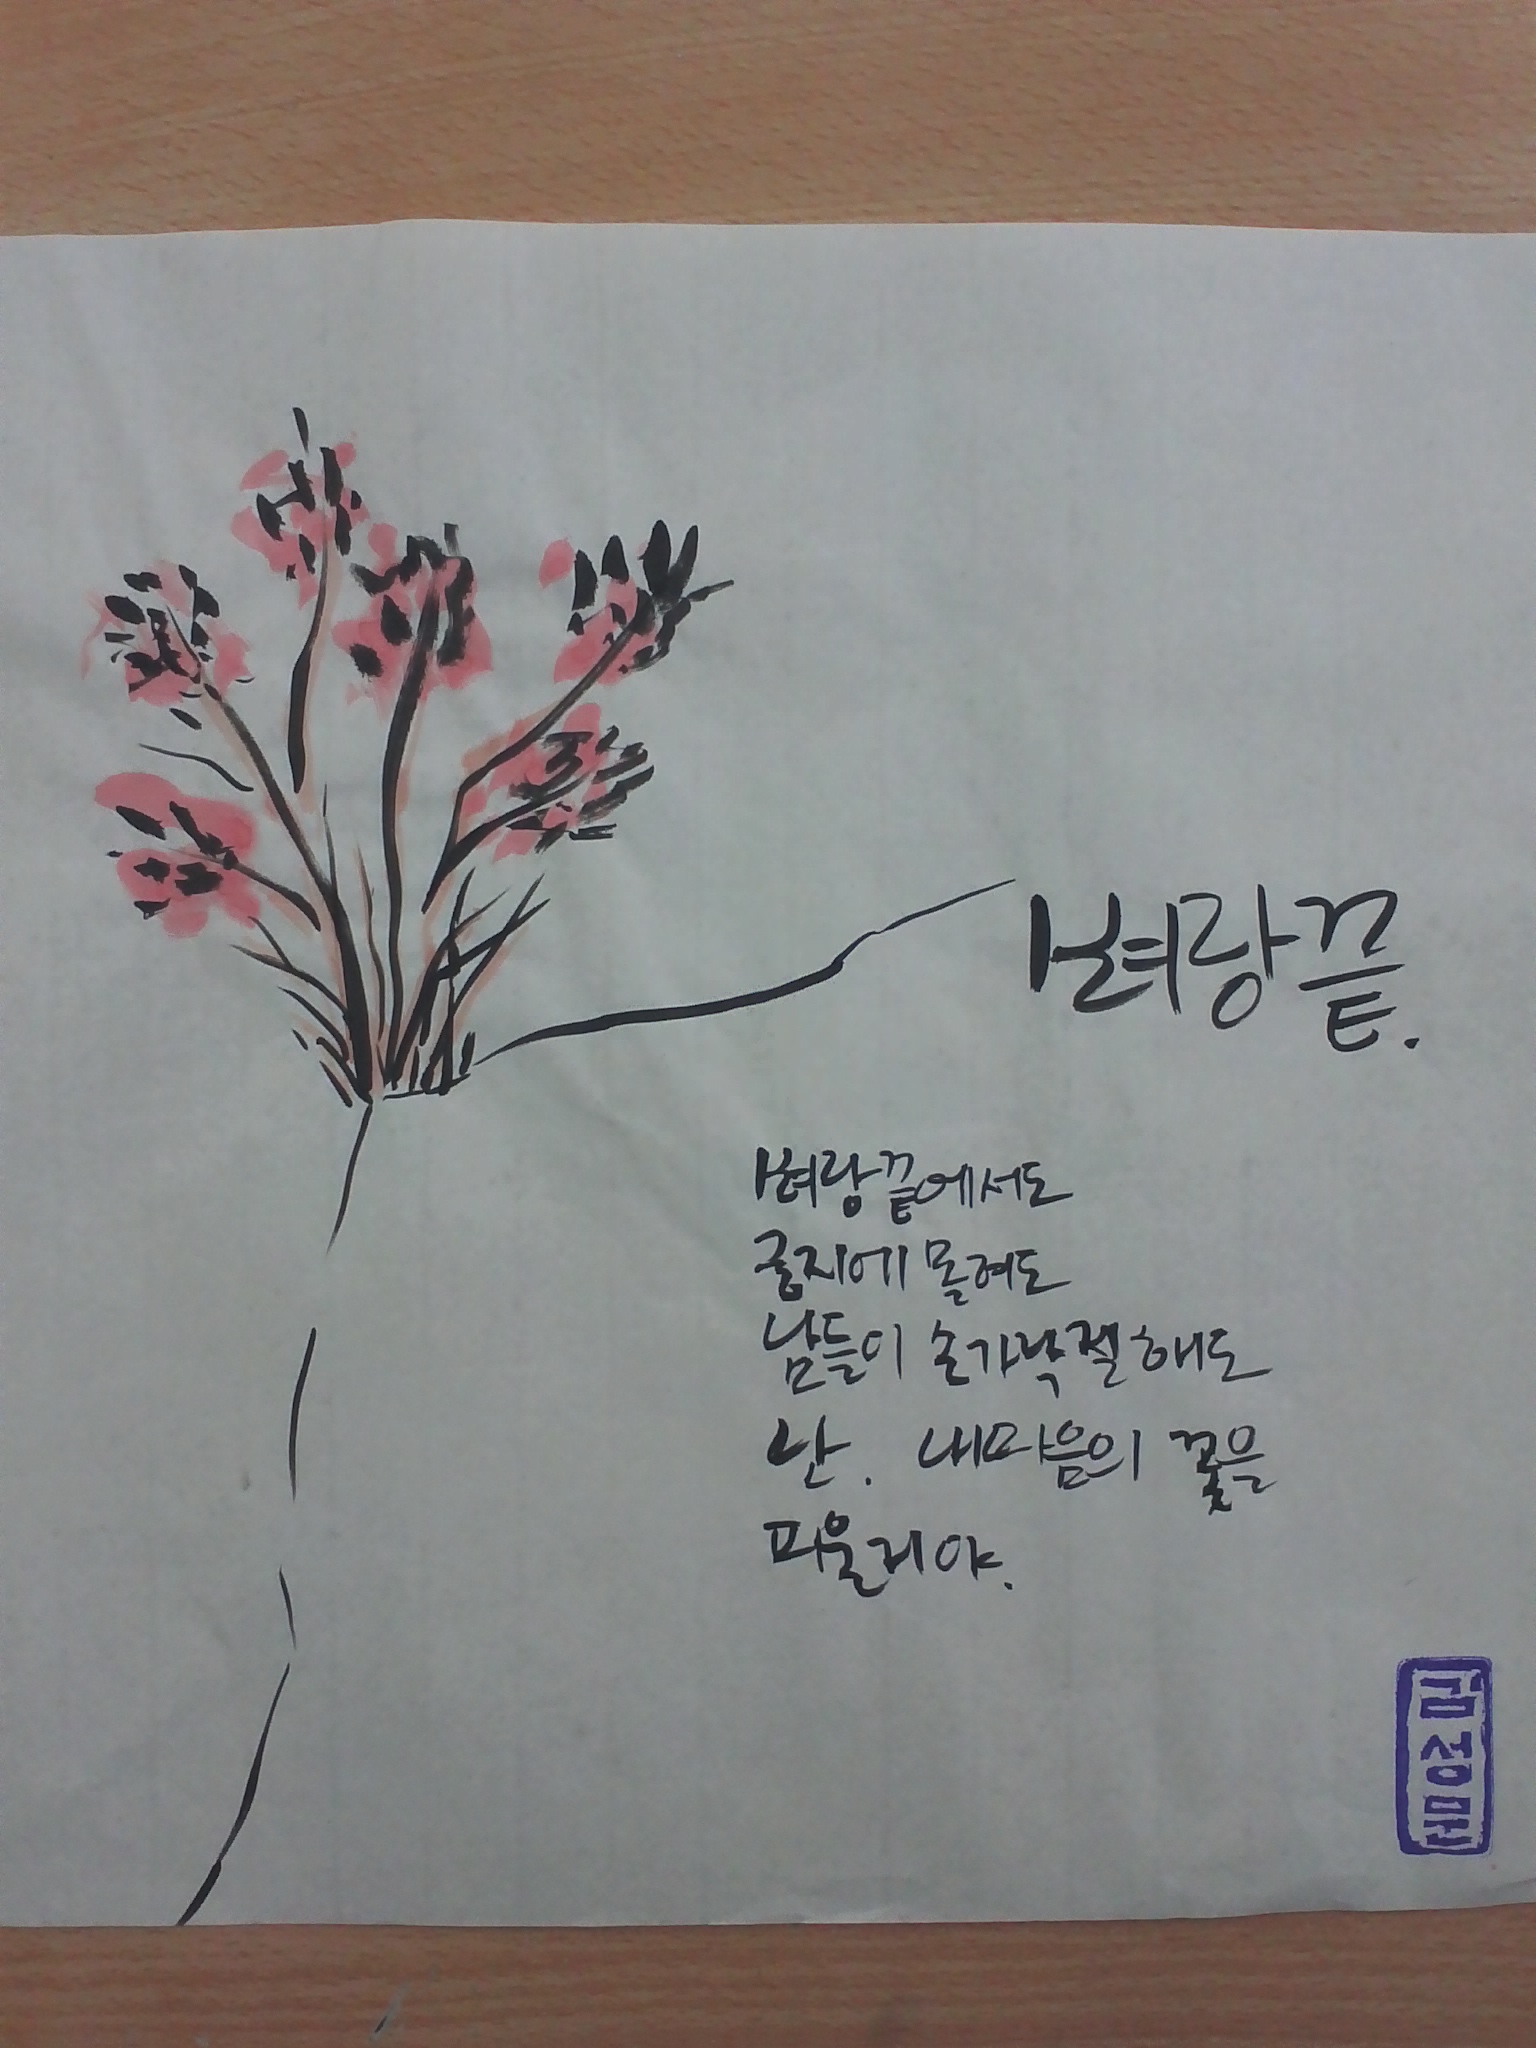 벼랑끝.
벼랑끝에서도
궁지에 몰려도
남들이 손가락질해도
난. 내마음의 꽃을
피울레야.
김성문